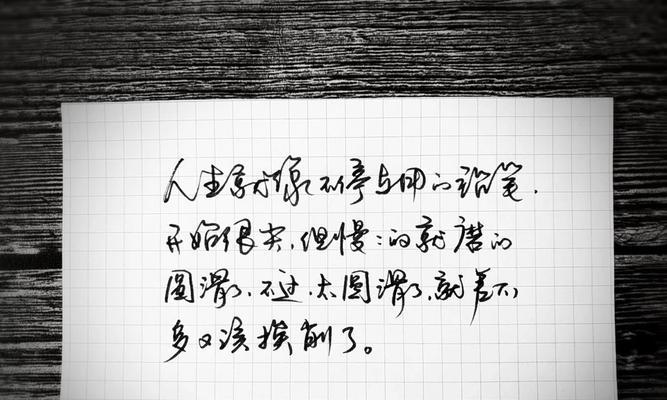 人生就像不停与用的铅笔，
开始很尖，但慢：的就磨的
圆滑了，不过，太圆滑了，就差不
多又该挨削了。